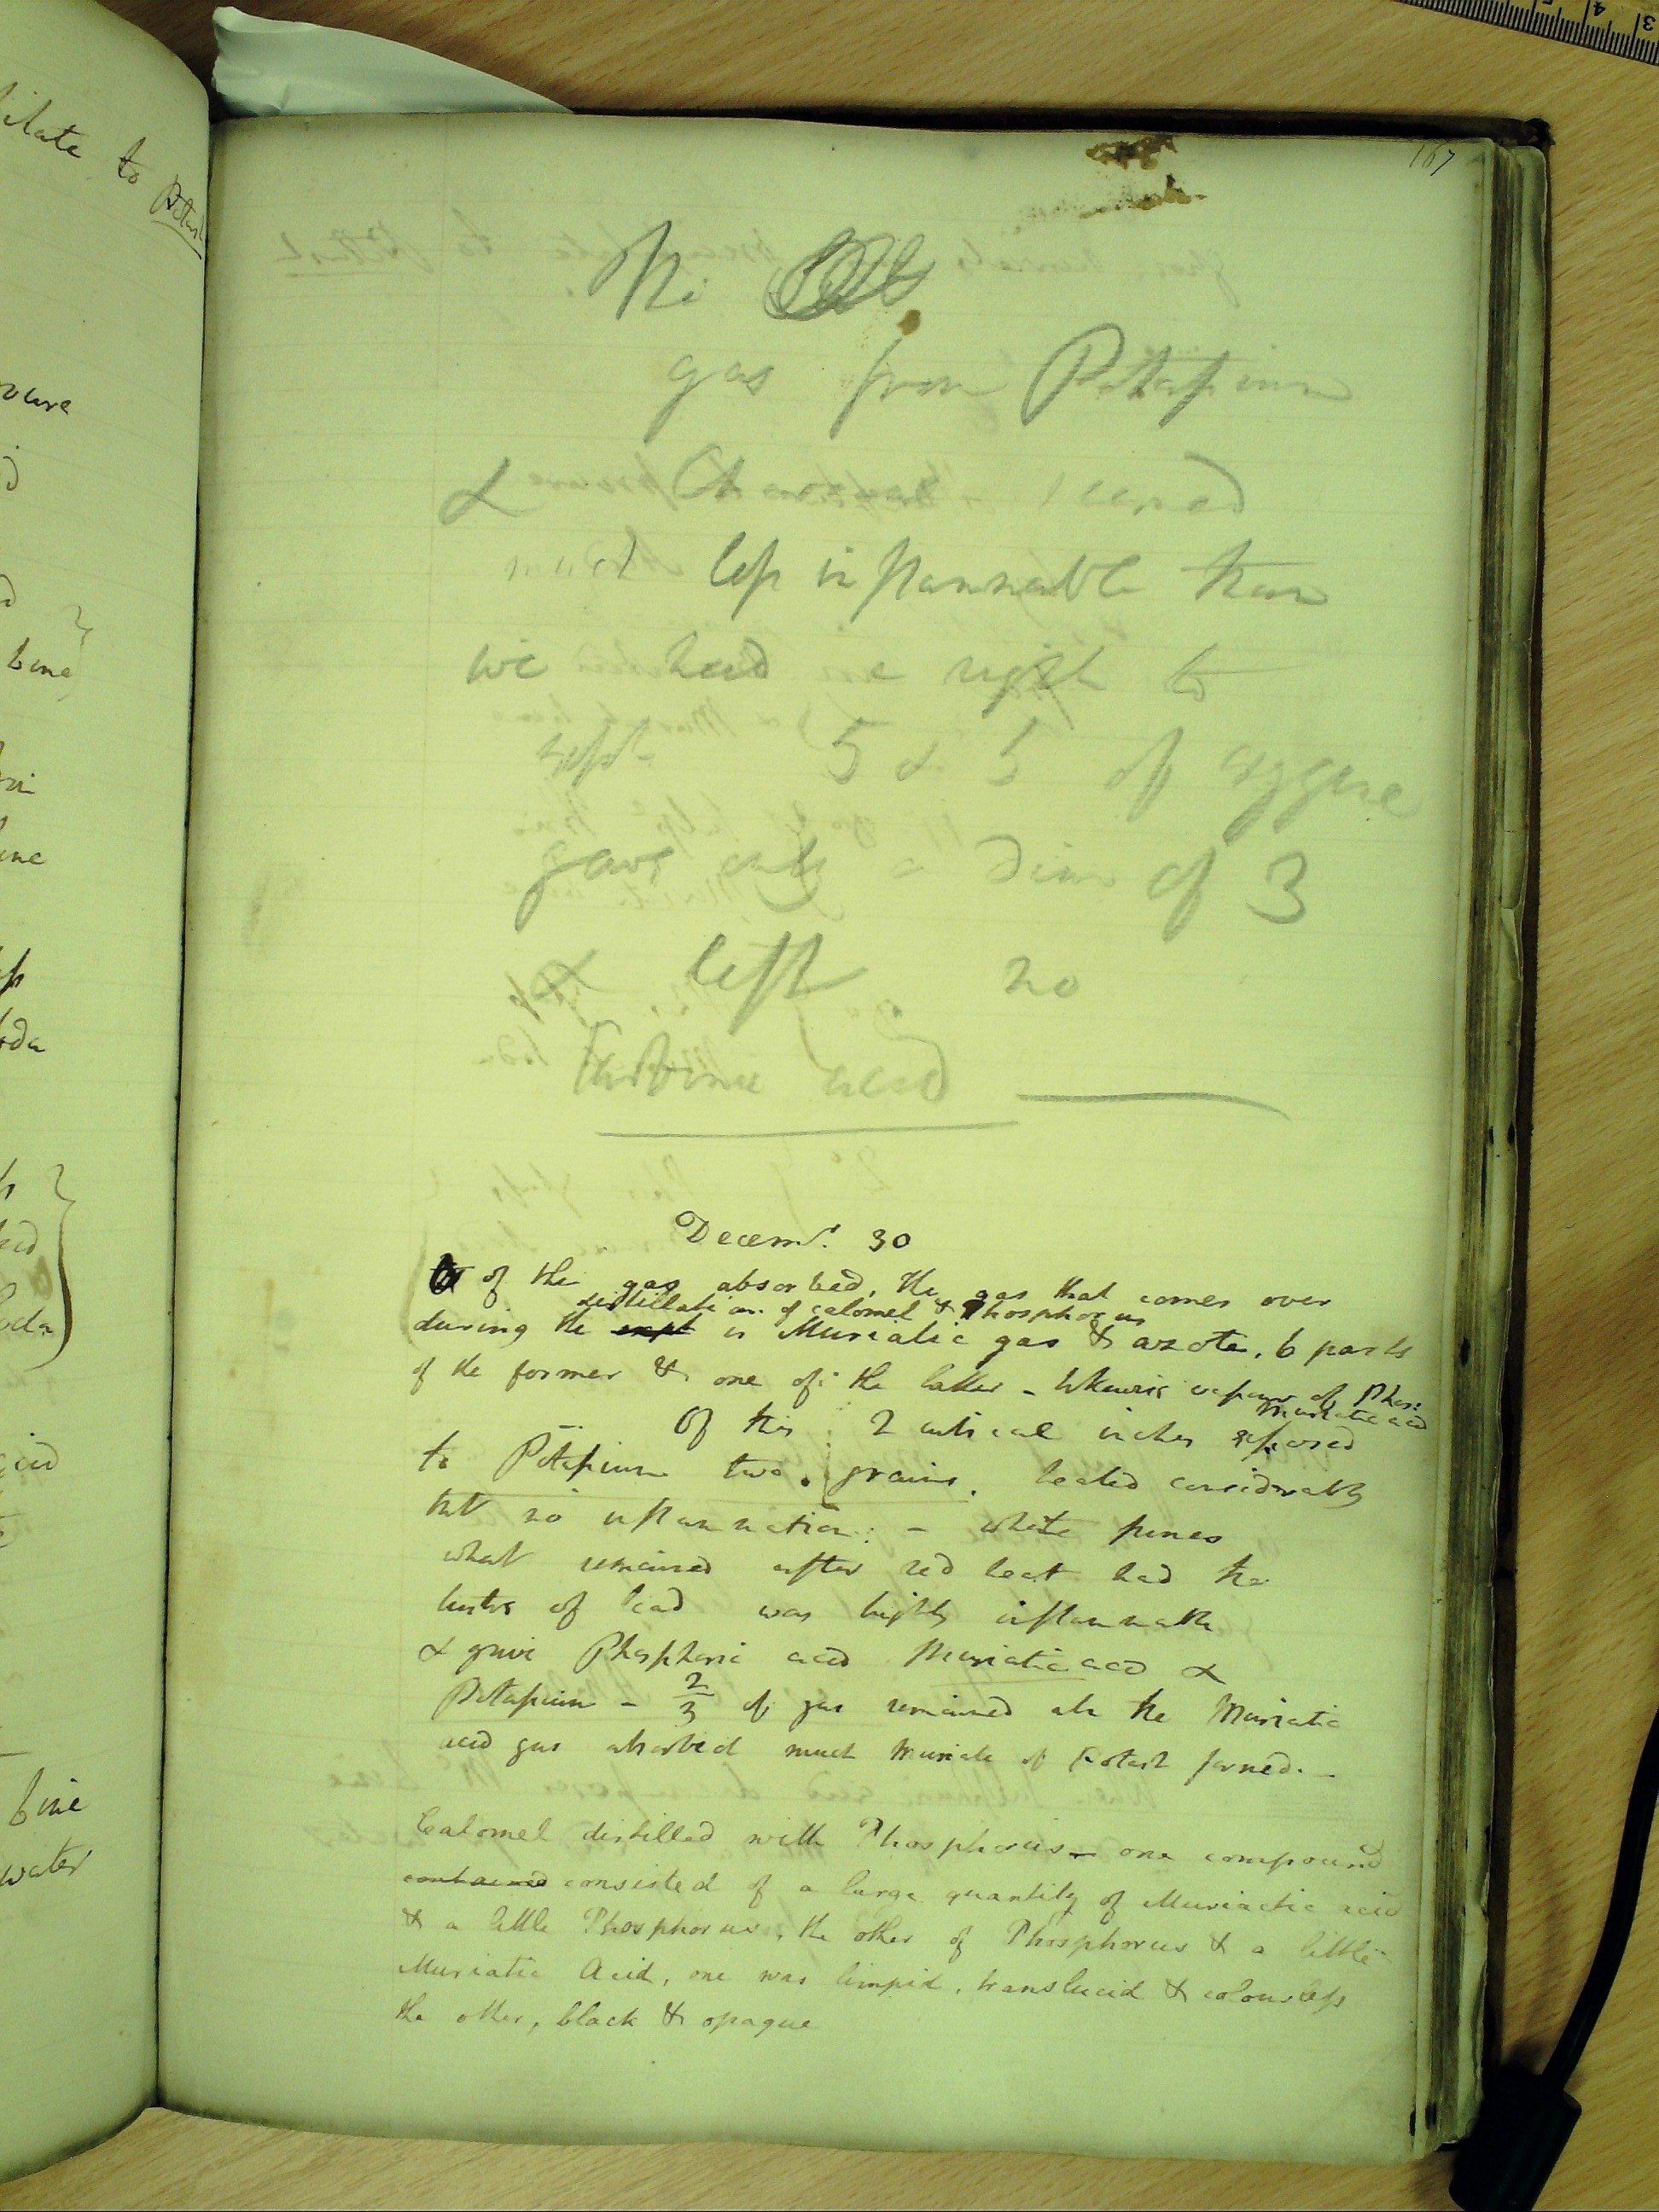 ilate to Potash
167
The
gas from Potassium
& Charcoal seemed
less inflammable than
we had a right to
5 & 5 of oxygene
gave only a dim of 3
& left no
Carbonic acid
Decemr. 30
of the gas absorbed, the gas that comes over
distillation of calomel & Phosphorus
during the expt is Muriatic gas & azote, 6 parts
of the former & one of the latter - likewise vapour of Phos:
muriatic acid
Of this 2 cubical inches exposed
to Potassium two grains. heated considerably
but no inflammation: - white fumes
what remained after red heat had the
lustre of lead was highly inflammable
& gave Phosphoric acid Muriatic acid &
Potassium - 2/3 of gas remained the Muriatic
acid gas absorbed much muriate of Potash formed. -
Calomel distilled with Phosphorus - one compound
contained consisted of a large quantity of Muriactic acid
& a little Phosphorus, the other of Phosphorus & a little
Muriatic Acid, one was limpid, translucid & colourless
the other, black & opaque
bine
fine
water